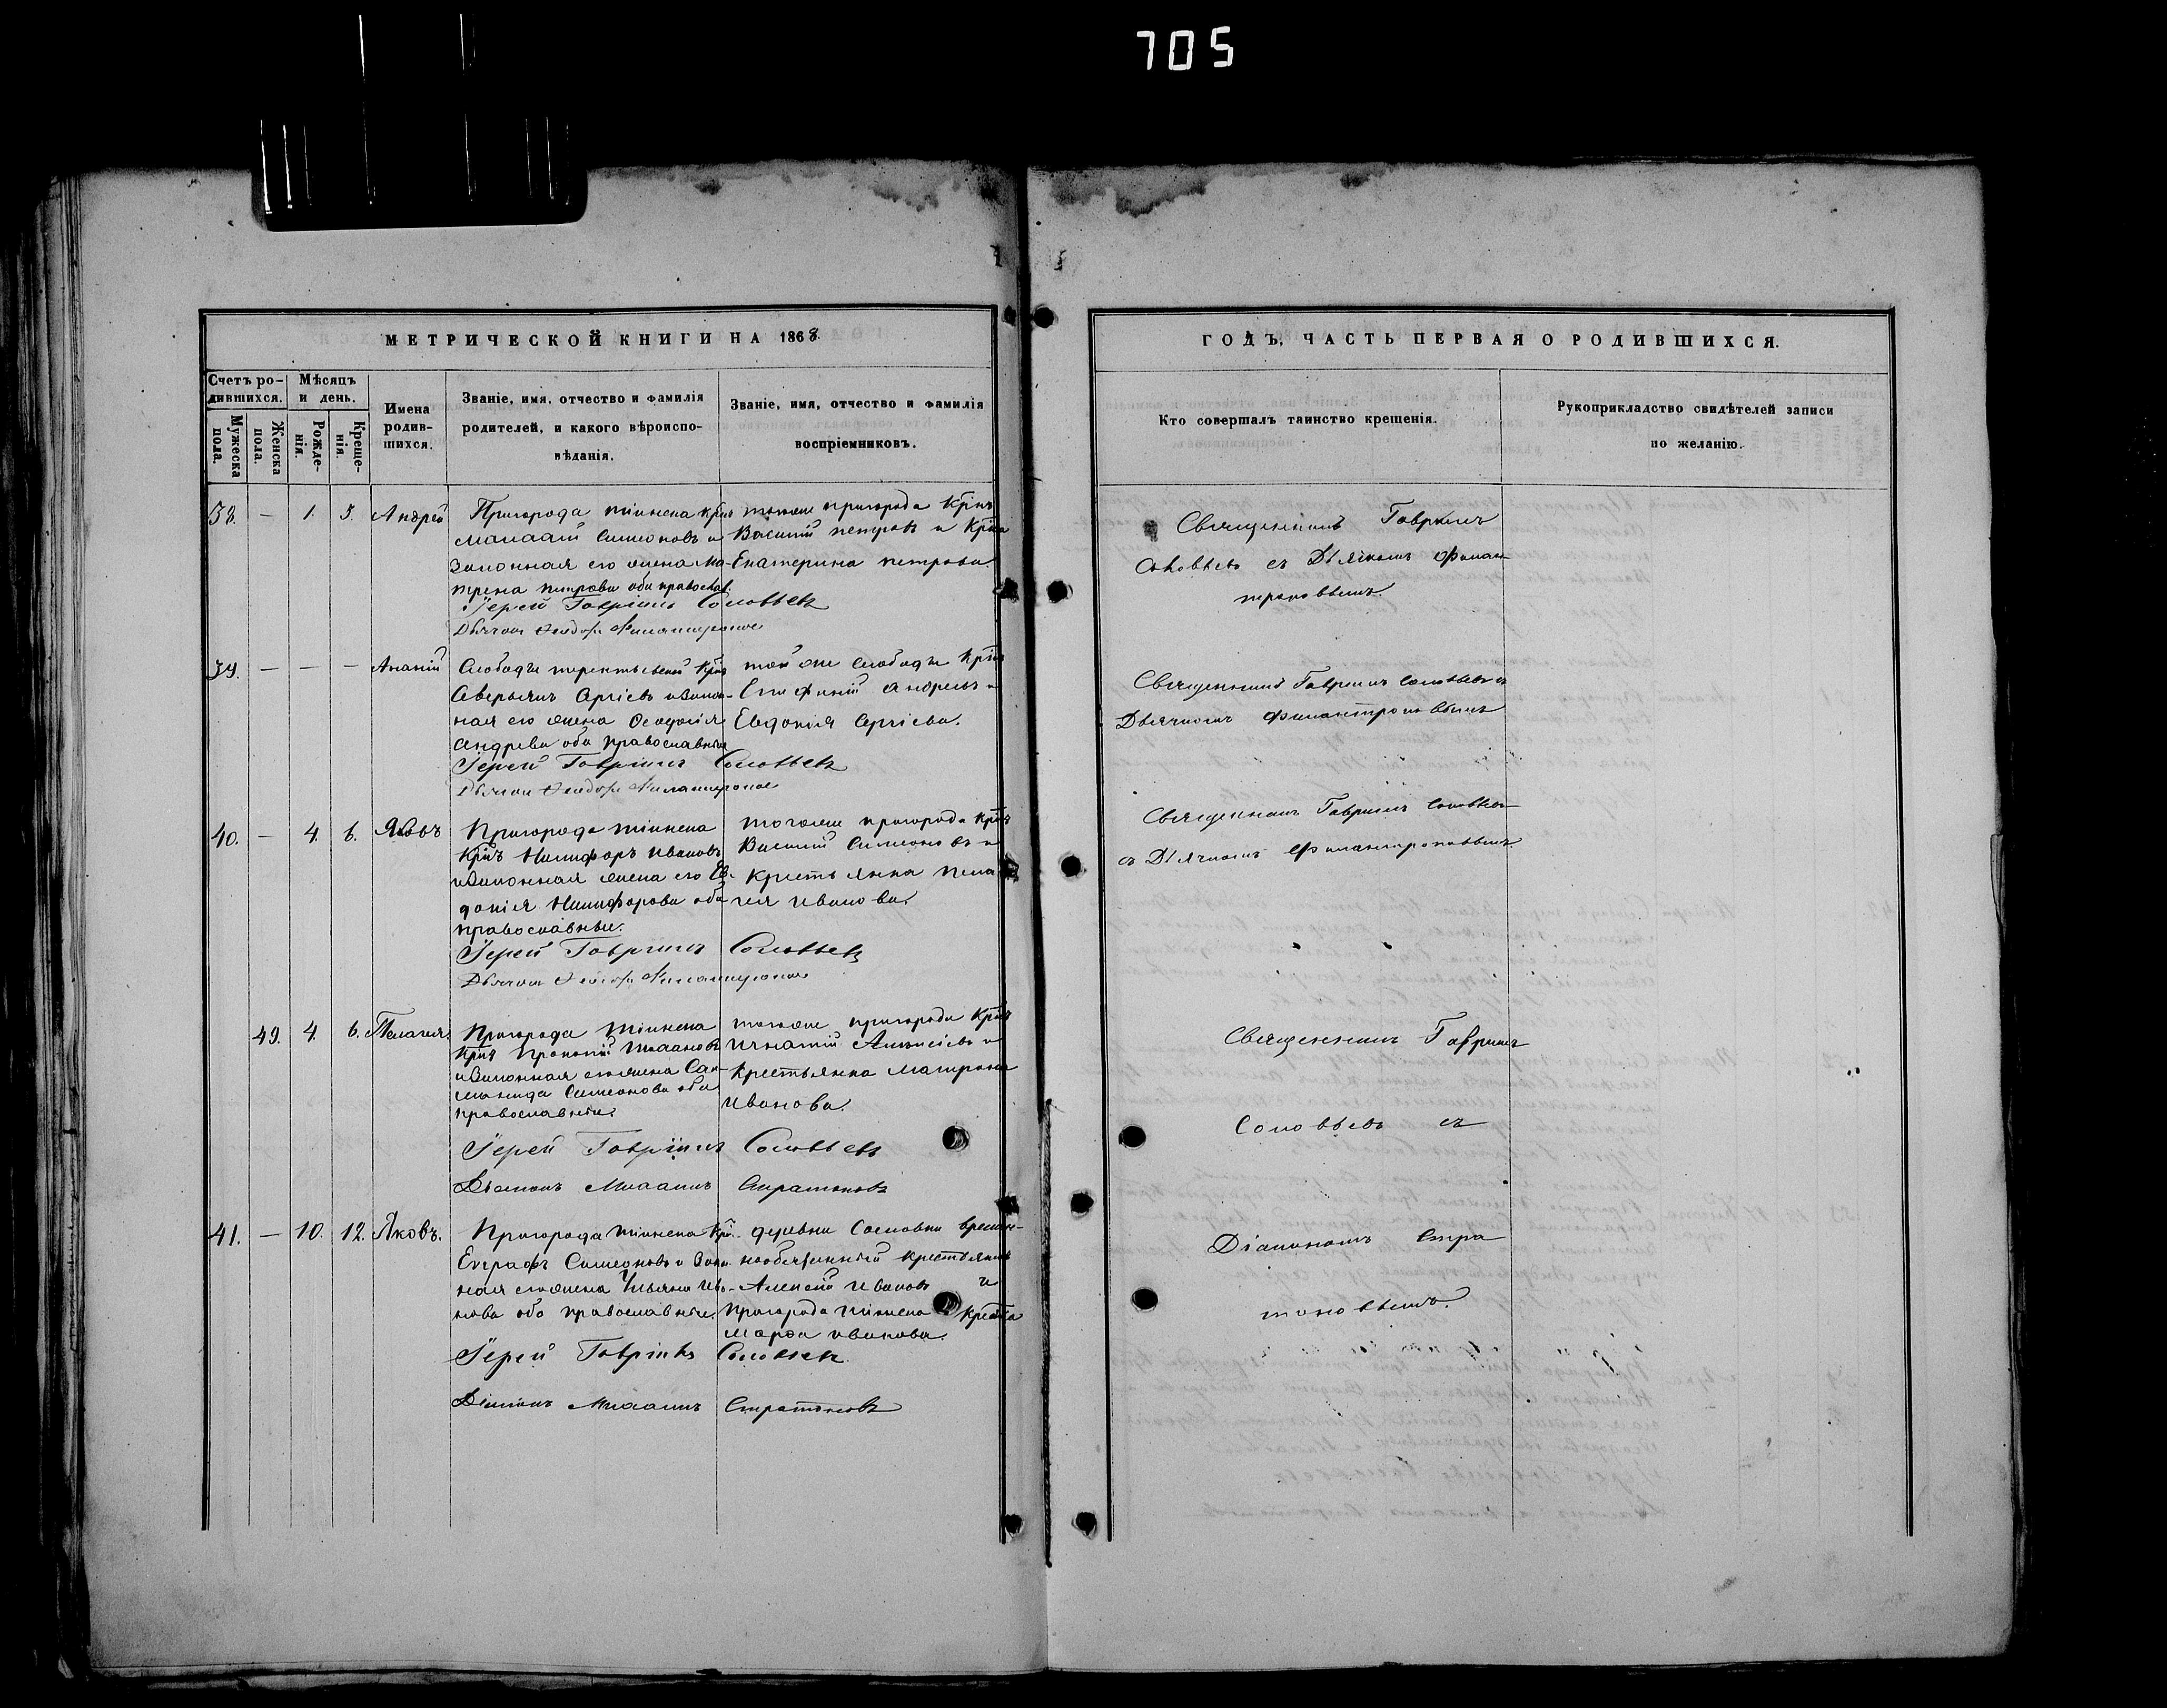 705
МЕТРИЧЕСКОЙ КНИГИ НА 1868
ГОДЪ, ЧАСТЬ ПЕРВАЯ О РОДИВШИХСЯ.
Счетъ ро-
дившихся.
Мужеска
пола.
Женска
пола.
Мѣсяцъ
и день.
Рожде-
нія.
Креще-
нія.
Имена
родив-
шихся.
Званіе, имя, отчество и фамилія
родителей, и какого вѣроиспо-
вѣданія.
Званіе, имя, отчество и фамилія
воспріемниковъ.
Кто совершалъ таинство крещенія.
Рукоприкладство свидѣтелей записи
по желанію.
38. — 1. 3. Андрей
Пригорода Тіинска
Симеоновъ и
законная его жена Ма-
трена Петрова оба православ.
Іерей Гавріилъ Соловьевъ
тогоже пригорода
Василій Петровъ и
Екатерина Петрова.
Священникъ Гавріилъ
Соловьевъ съ Дьячкомъ Филан-
троповымъ.
39. — — — Ананій
Слободы
Аверьянъ Сергіевъ и закон-
ная его жена
Андреева оба православные
Іерей Гавріилъ Соловьевъ
той же слободы
Андреевъ и
Евдокія Сергіева.
Священникъ Гавріилъ Соловьевъ съ
Дьячкомъ Филантроповымъ
40. — 4. 6. Яковъ
Пригорода Тіинска
Никифоръ Ивановъ
и законная жена его Ев-
докія Никифорова оба
православные.
Іерей Гавріилъ Соловьевъ
тогоже пригорода
Василій Симеоновъ и
крестьянка Пела-
гея Иванова.
Священникъ Гавріилъ Соловьевъ
съ Дьячкомъ Филантроповымъ
49. 4. 6. Пелагия
Пригорода Тіинска
Прокопій
и законная его жена Со-
ломонида Симеонова оба
православные.
Іерей Гавріилъ Соловьевъ
Діаконъ Михаилъ Стратоновъ
тогоже пригорода
Игнатій и
крестьянка Матрона
Иванова.
Священникъ Гавріилъ
Соловьевъ съ
Діакономъ Стра
тоновымъ.
41. — 10. 12. Яковъ.
Пригорода Тіинска
Евграфъ Симеоновъ и закон-
ная его жена Ульяна Ива-
нова оба православные.
Іерей Гавріилъ Соловьевъ
Діаконъ Михаилъ Стратоновъ
деревни Сосновки времен-
нообязанный крестьянинъ
Алексій Ивановъ и
пригорода Тіинска
Марфа Иванова.